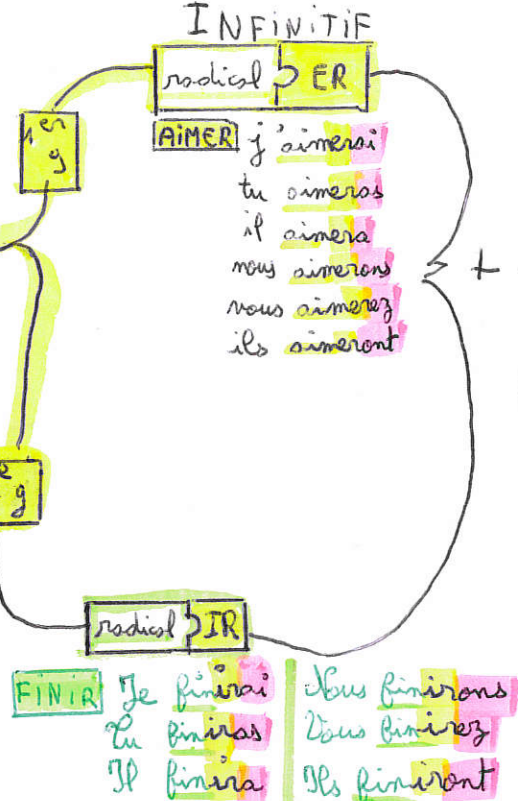 INFINITIF
radical ER
1er
g
AIMER j'aimerai
tu aimeras
il aimera
+
nous aimerons
vous aimerez
ils aimeront
e
g
radical IR
FINIR Je finirai
Tu finiras
Il finira
Nous finirons
Vous finirez
Ils finiront